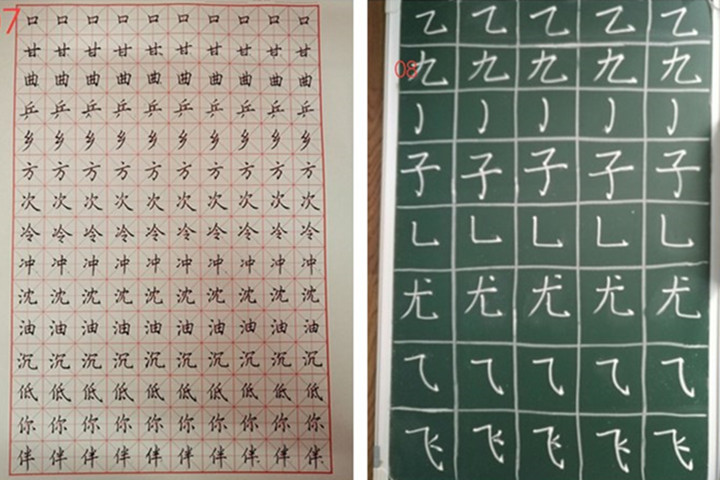 7
口口口口口口口口口口
甘甘甘甘甘甘甘甘甘甘
曲曲曲曲曲曲曲曲曲曲
乒乒乒乒乒乒乒乒乒乒
乡乡乡乡乡乡乡乡乡乡
方方方方方方方方方方
次次次次次次次次次次
冷冷冷冷冷冷冷冷冷冷
冲冲冲冲冲冲冲冲冲冲
沈沈沈沈沈沈沈沈沈沈
油油油油油油油油油油
沉沉沉沉沉沉沉沉沉沉
低低低低低低低低低低
你你你你你你你你你你
伴伴伴伴伴伴伴伴伴伴
08
乙乙乙乙乙
九九九九九
子子子子子
乚乚乚乚乚
尤尤尤尤尤
⺄⺄⺄⺄⺄
飞飞飞飞飞